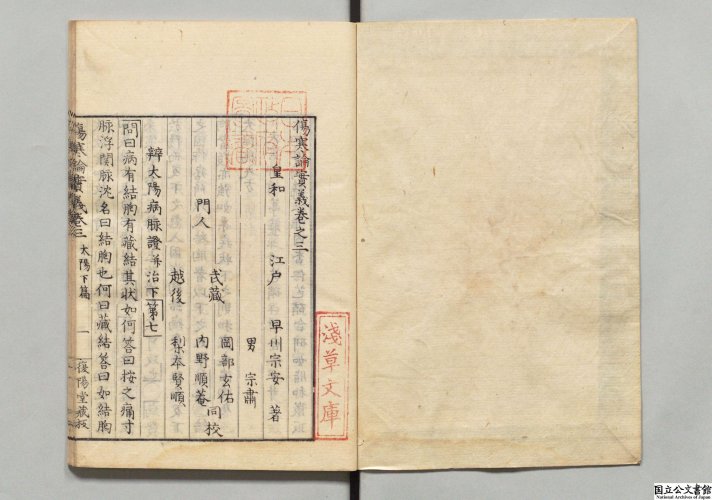 傷寒論實義卷之三
皇和 江户 早川宗安 著
男 宗肅
武藏 岡部玄佑
門人 内野順菴 同校
越後 梨本賢順
辨太陽病脉證并治下第七
問曰病有結胸有藏結其状如何答曰按之痛寸
脉浮関脉沈名曰結胸也何曰藏結答曰如結胸
傷寒論實義卷三 太陽下篇 一 復陽堂藏板
淺草文庫
国立公文書館
National Archives of Japan